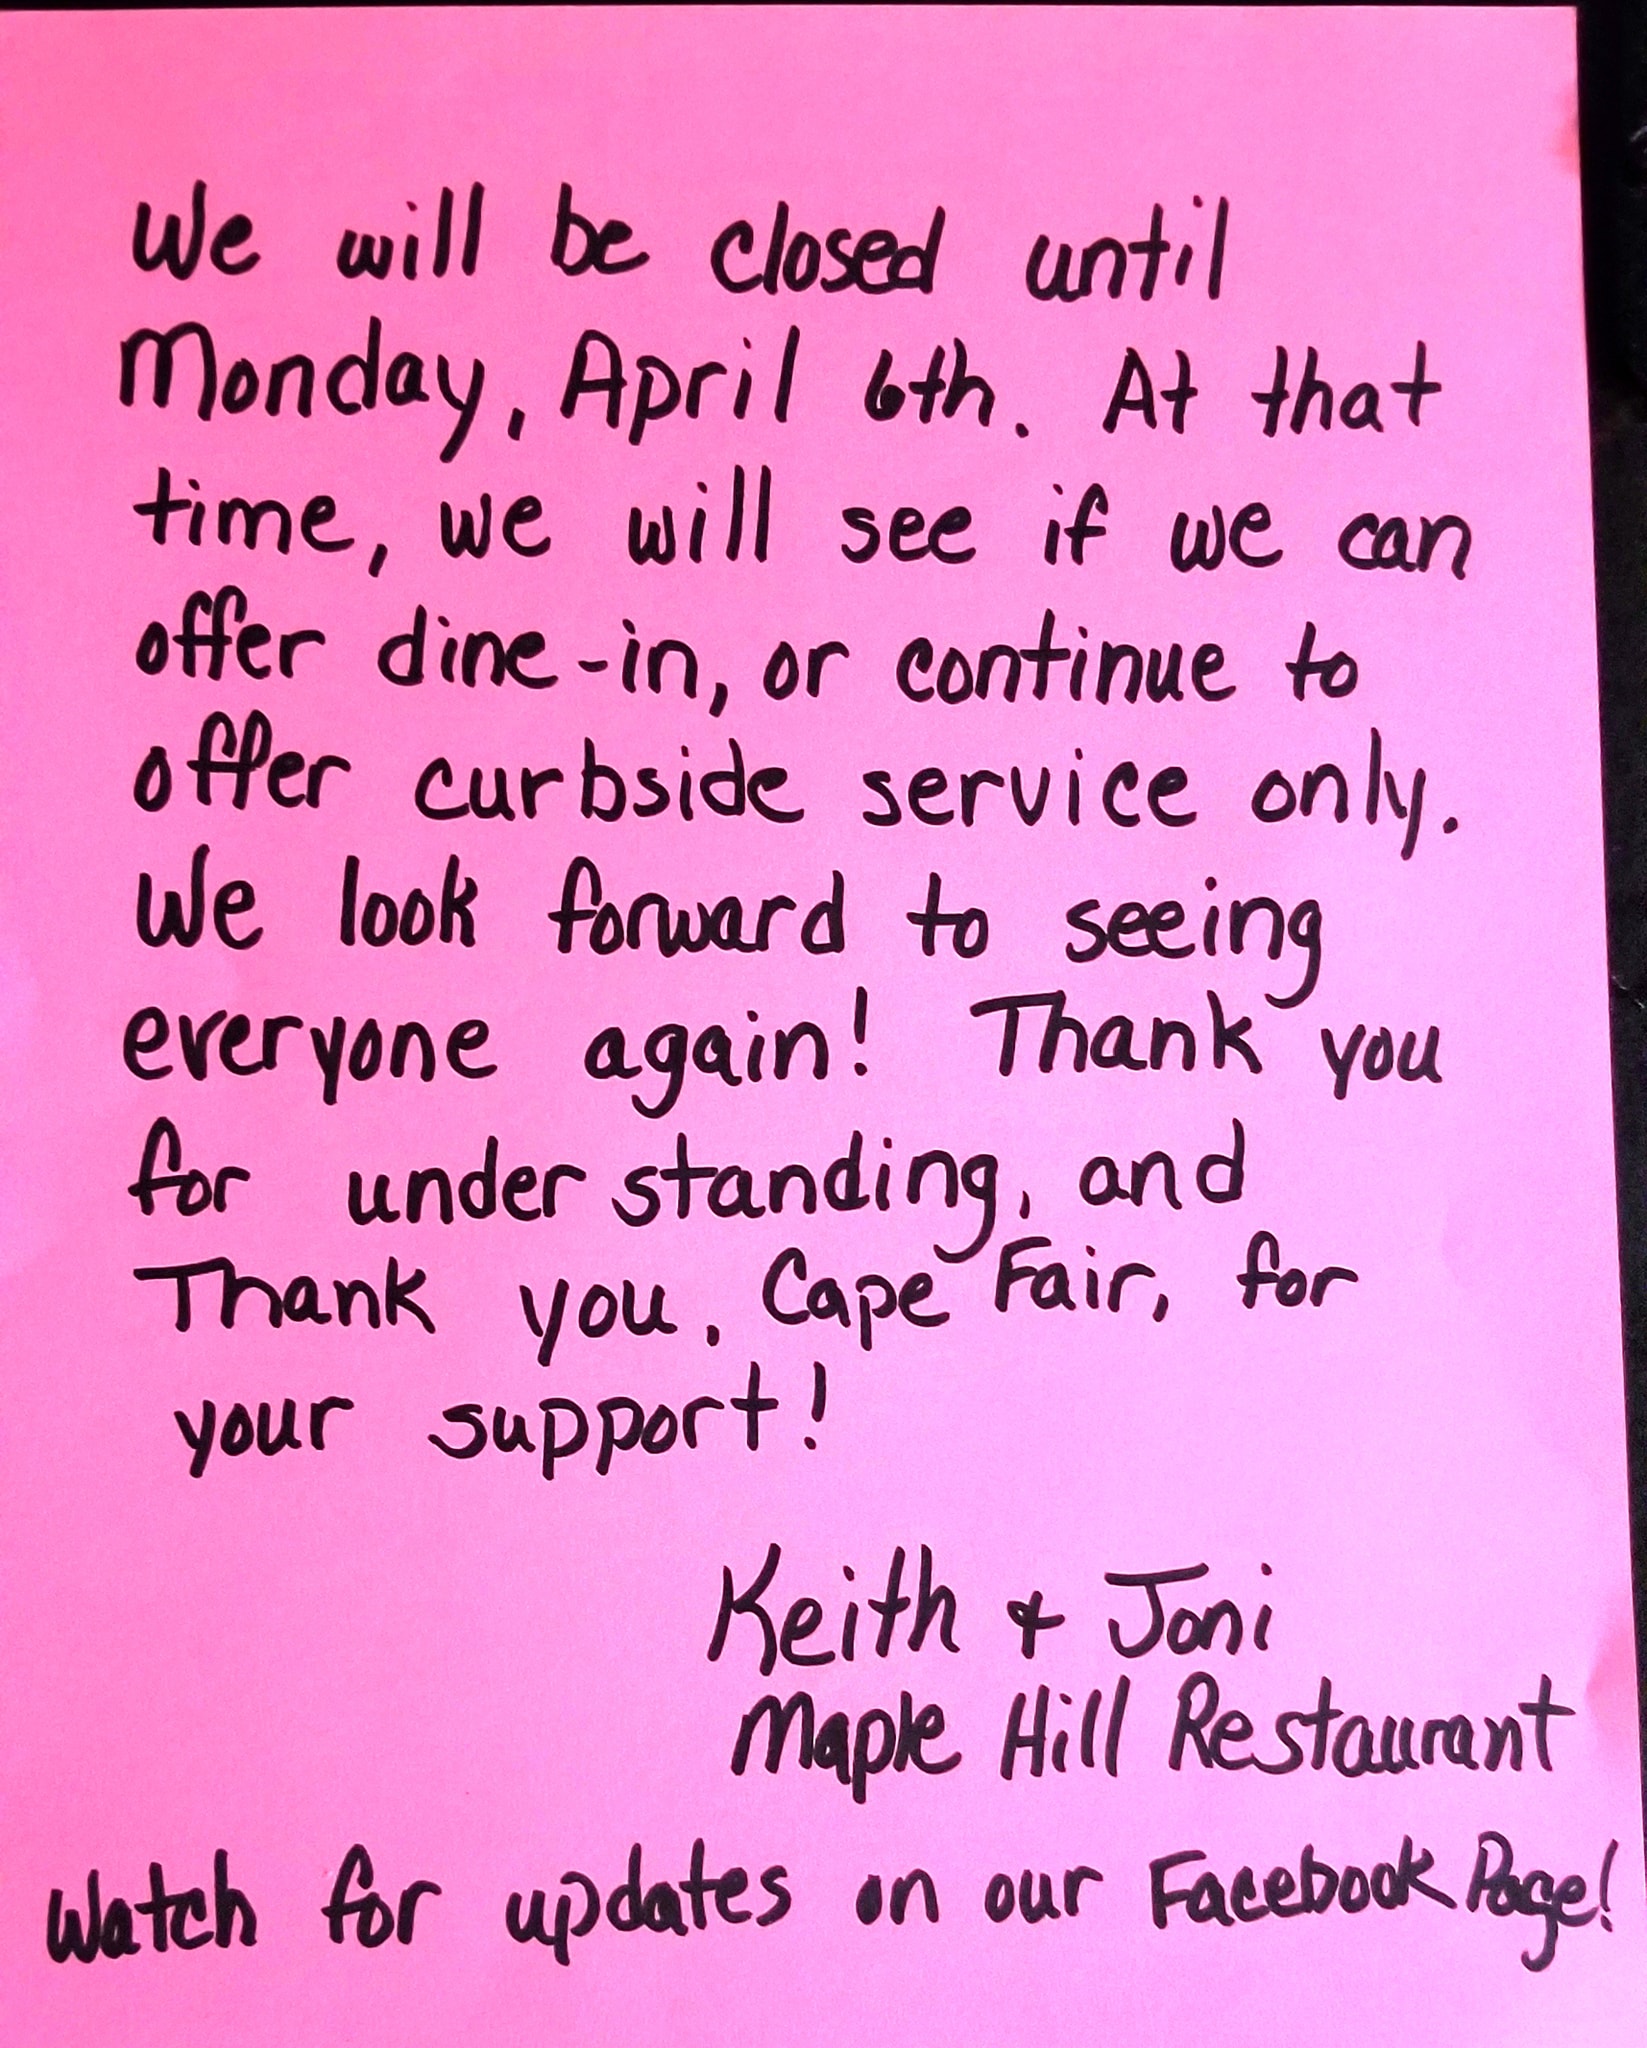 We will be closed until
Monday, April 6th. At that
time, we will see if we can
offer dine-in, or continue to
offer curbside service only.
We look forward to seeing
everyone again! Thank you
for understanding, and
Thank you, Cape Fair, for
your support!
Keith & Joni
Maple Hill Restaurant
Watch for updates on our Facebook Page!